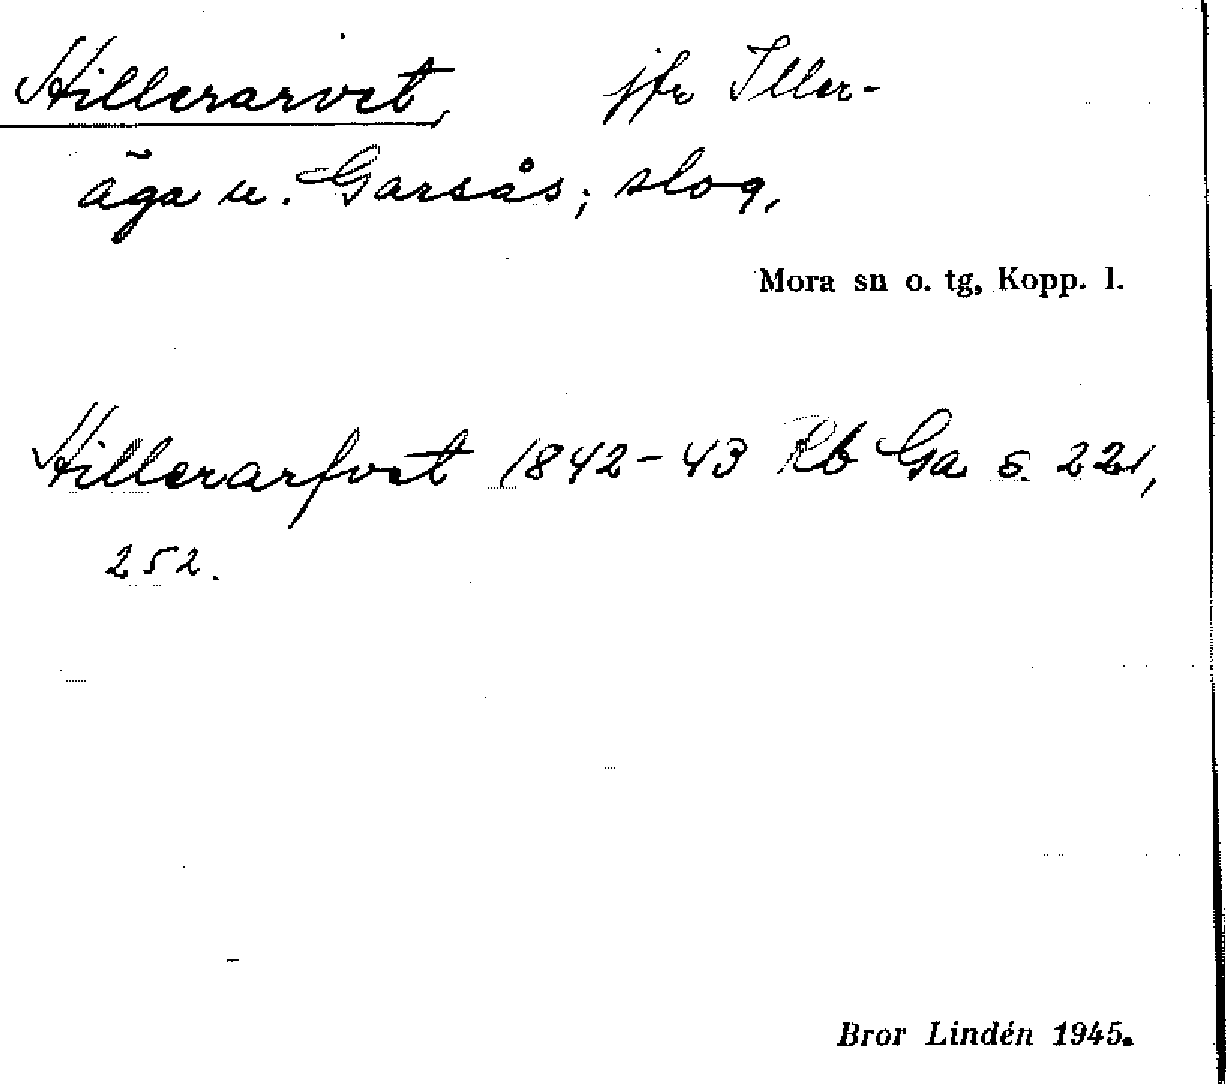 Hillerarvet, jfr Iller-
äga u. Garsås; slog,
Mora sn o. tg, Kopp. l.
Hillerarfvet 1842-43 Rb Ga s. 221,
252.
Bror Lindén 1945.